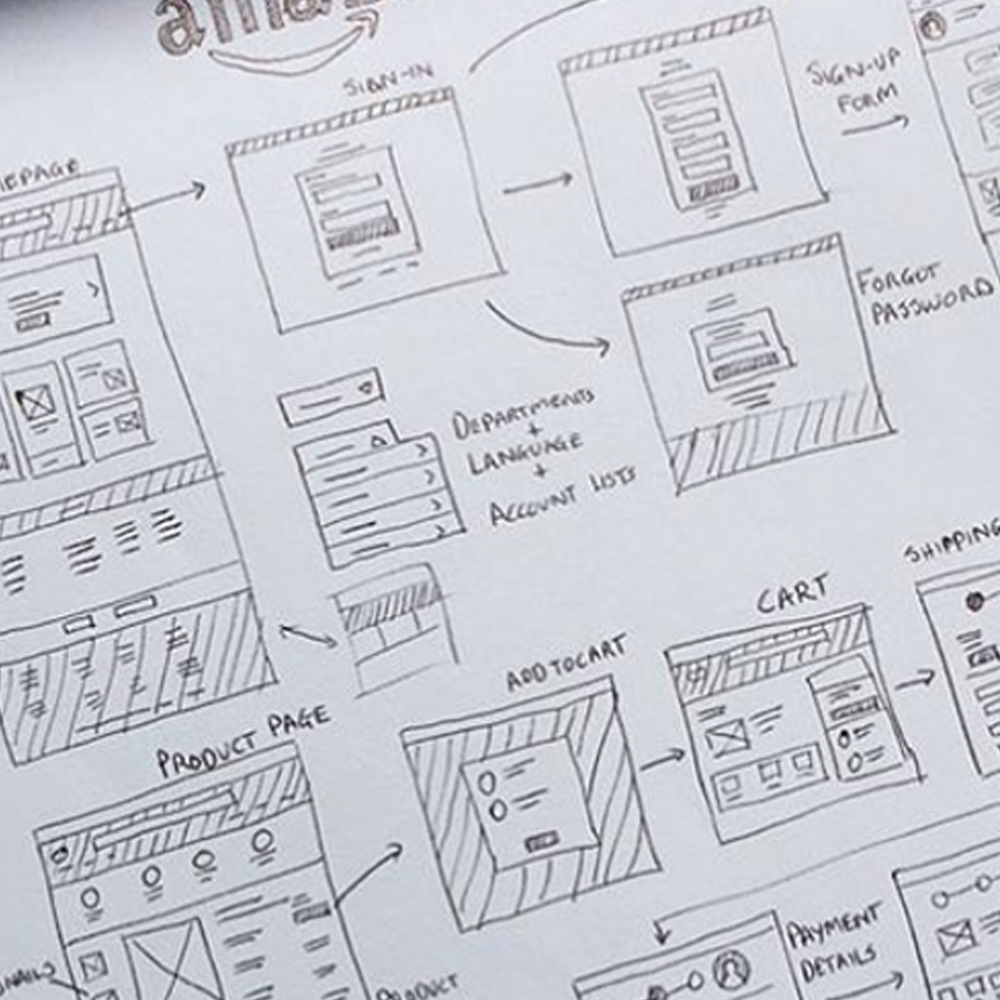 SIGN-IN
SIGN-UP
FORM
FORGOT
PASSWORD
DEPARTMENTS
+
LANGUAGE
+
ACCOUNT LISTS
SHIPPING
CART
ADD TO CART
PRODUCT PAGE
PAYMENT
DETAILS
PRODUCT